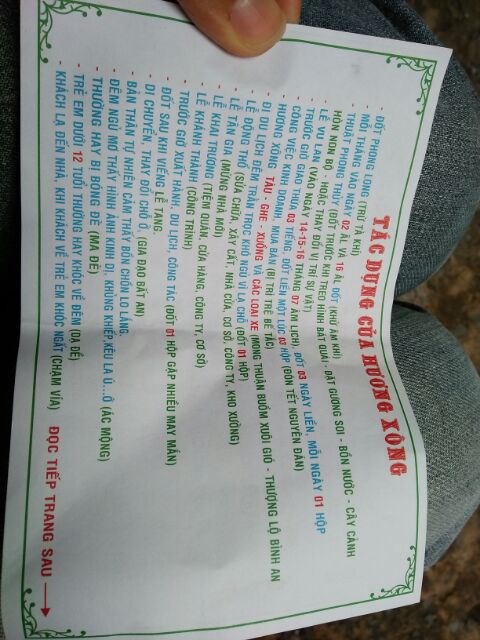 TÁC DỤNG CỦA HƯƠNG XÔNG
- ĐỐT PHONG LONG (TRỪ TÀ KHÍ)
- MỖI THÁNG VÀO NGÀY 02 ÂL VÀ 16 ÂL ĐỐT (KHỬ ÂM KHÍ)
- THUẬT PHONG THỦY (ĐỐT TRƯỚC KHI TREO HÌNH BÁT QUÁI - ĐẶT GƯƠNG SOI - BỒN NƯỚC - CÂY CẢNH
HÒN NON BỘ - HOẶC THAY ĐỔI VỊ TRÍ SỰ VẬT)
- LỄ VU LAN (VÀO NGÀY 14-15-16 THÁNG 07 ÂM LỊCH) ĐỐT 03 NGÀY LIỀN, MỖI NGÀY 01 HỘP
- TRƯỚC GIỜ GIAO THỪA 03 TIẾNG, ĐỐT LIỀN MỘT LÚC 03 HỘP (ĐÓN TẾT NGUYÊN ĐÁN)
- CÔNG VIỆC KINH DOANH, MUA BÁN (BỊ TRÌ TRỆ BẾ TẮC)
- HƯƠNG XÔNG TÀU - GHE - XUỒNG VÀ CÁC LOẠI XE (MONG THUẬN BUỒM XUÔI GIÓ - THƯỢNG LỘ BÌNH AN
- ĐI DU LỊCH ĐÊM TOÀN TRỌC KHÓ NGỦ VÌ LẠ CHỖ (ĐỐT 01 HỘP)
- LỄ ĐỘNG THỔ (SỬA CHỮA, XÂY CẤT, NHÀ CỬA, CƠ SỞ, CÔNG TY, KHO XƯỞNG)
- LỄ TÂN GIA (MỪNG NHÀ MỚI)
- LỄ KHAI TRƯƠNG (TIỆM QUÁN, CỬA HÀNG, CÔNG TY, CƠ SỞ)
- LỄ KHÁNH THÀNH (CÔNG TRÌNH)
- TRƯỚC GIỜ XUẤT HÀNH, DU LỊCH, CÔNG TÁC (ĐỐT 01 HỘP GẶP NHIỀU MAY MẮN)
- ĐỐT SAU KHI VIẾNG LỄ TANG.
- DI CHUYỂN, THAY ĐỔI CHỖ Ở, (GIA ĐẠO BẤT AN)
- BẢN THÂN TỰ NHIÊN CẢM THẤY BỒN CHỒN LO LẮNG.
- ĐÊM NGỦ MƠ THẤY HÌNH ẢNH KINH DỊ, KHỦNG KHIẾP, KÊU LA Ú...Ớ (ÁC MỘNG)
- THƯỜNG HAY BỊ BÓNG ĐÈ (MA ĐÈ)
- TRẺ EM DƯỚI 12 TUỔI THƯỜNG HAY KHÓC VỀ ĐÊM (DẠ ĐỀ)
- KHÁCH LẠ ĐẾN NHÀ, KHI KHÁCH VỀ TRẺ EM KHÓC NGẤT (CHẠM VÍA)
ĐỌC TIẾP TRANG SAU →